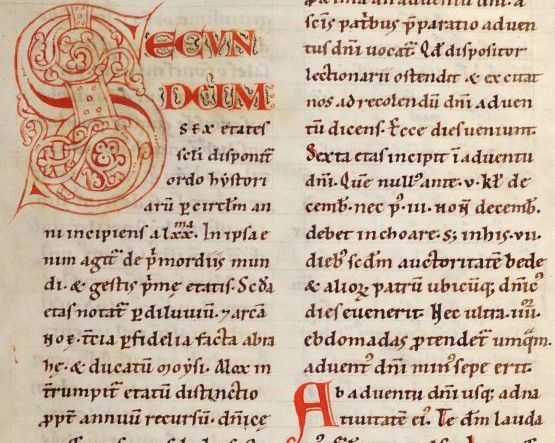 SECUN
DUM
sex etates
scl̄i disponit̄
ordo hystori
arū p circl̄m an
ni incipiens a lxx.ᵐᵃ In ipsa e
nim agit̄ de p̄mordiis mun
di. & gestis p̄me etatis. Sc̄da
etas notat̄ p diluuiū. ⁊ arcā
Noe. t̄cia p fidelia facta abra
he. & ducatū moysi. Mox in
t̄rumpit̄ etatū distinctio
ppt̄ annuū recursū. dn̄ice
sc̄is pat̄bus p̄paratio aduen
tus dn̄i uocat̄. Qd̄ dispositor
lectionarii ostendit & excitat
nos ad recolendū dn̄i aduen
tū dicens. Ecce dies ueniunt.
Sexta etas incipit ī aduentu
dn̄i. Que null᾽ ante .v. kl̄ de
cemb̄. nec p᾽ .iii. non̄ decemb̄.
debet inchoare. s; in his .vii.
dieb᾽ scd̄m auctoritatē bede
& alioꝝ patrū ubicūq; dn̄ic᾽
dies euenerit. Nec ultra .iiii.
ebdomadas p̄tendet̄ umq̄m.
aduent᾽ dn̄i min᾽ sepe erit.
Ab aduentu dn̄i usq; ad na
tiuitatē ei᾽. Te dm̄ lauda